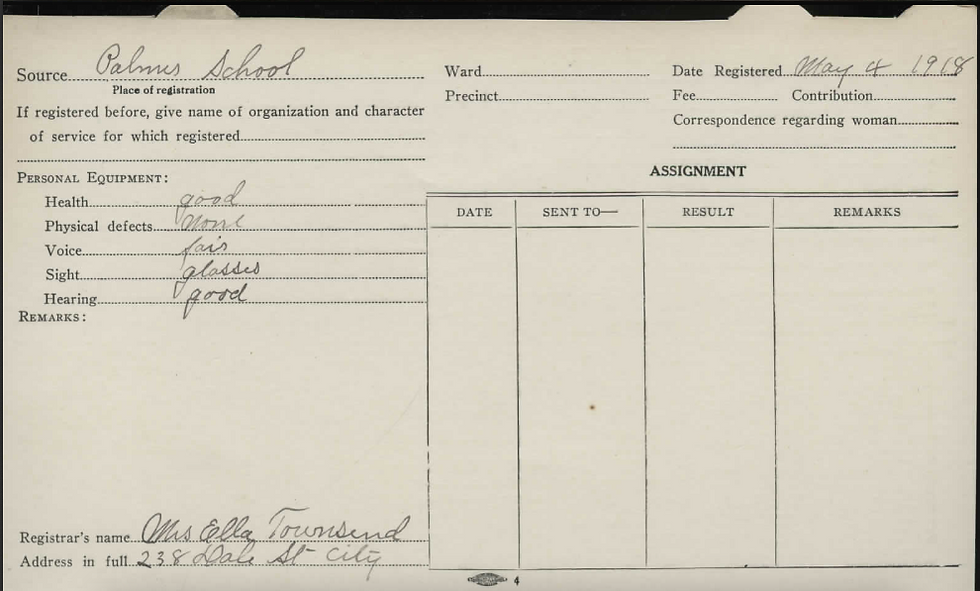 Source Palmer School
Place of registration
If registered before, give name of organization and character
of service for which registered
PERSONAL EQUIPMENT:
Health good
Physical defects none
Voice fair
Sight glasses
Hearing good
REMARKS:
Registrar's name Mrs Ella Townsend
Address in full 238 Dale St City
Ward
Precinct
Date Registered May 4 1918
Fee Contribution
Correspondence regarding woman
ASSIGNMENT
DATE SENT TO— RESULT REMARKS
4